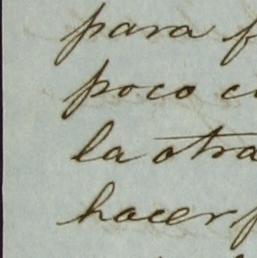 para
poco
la otra
hacer